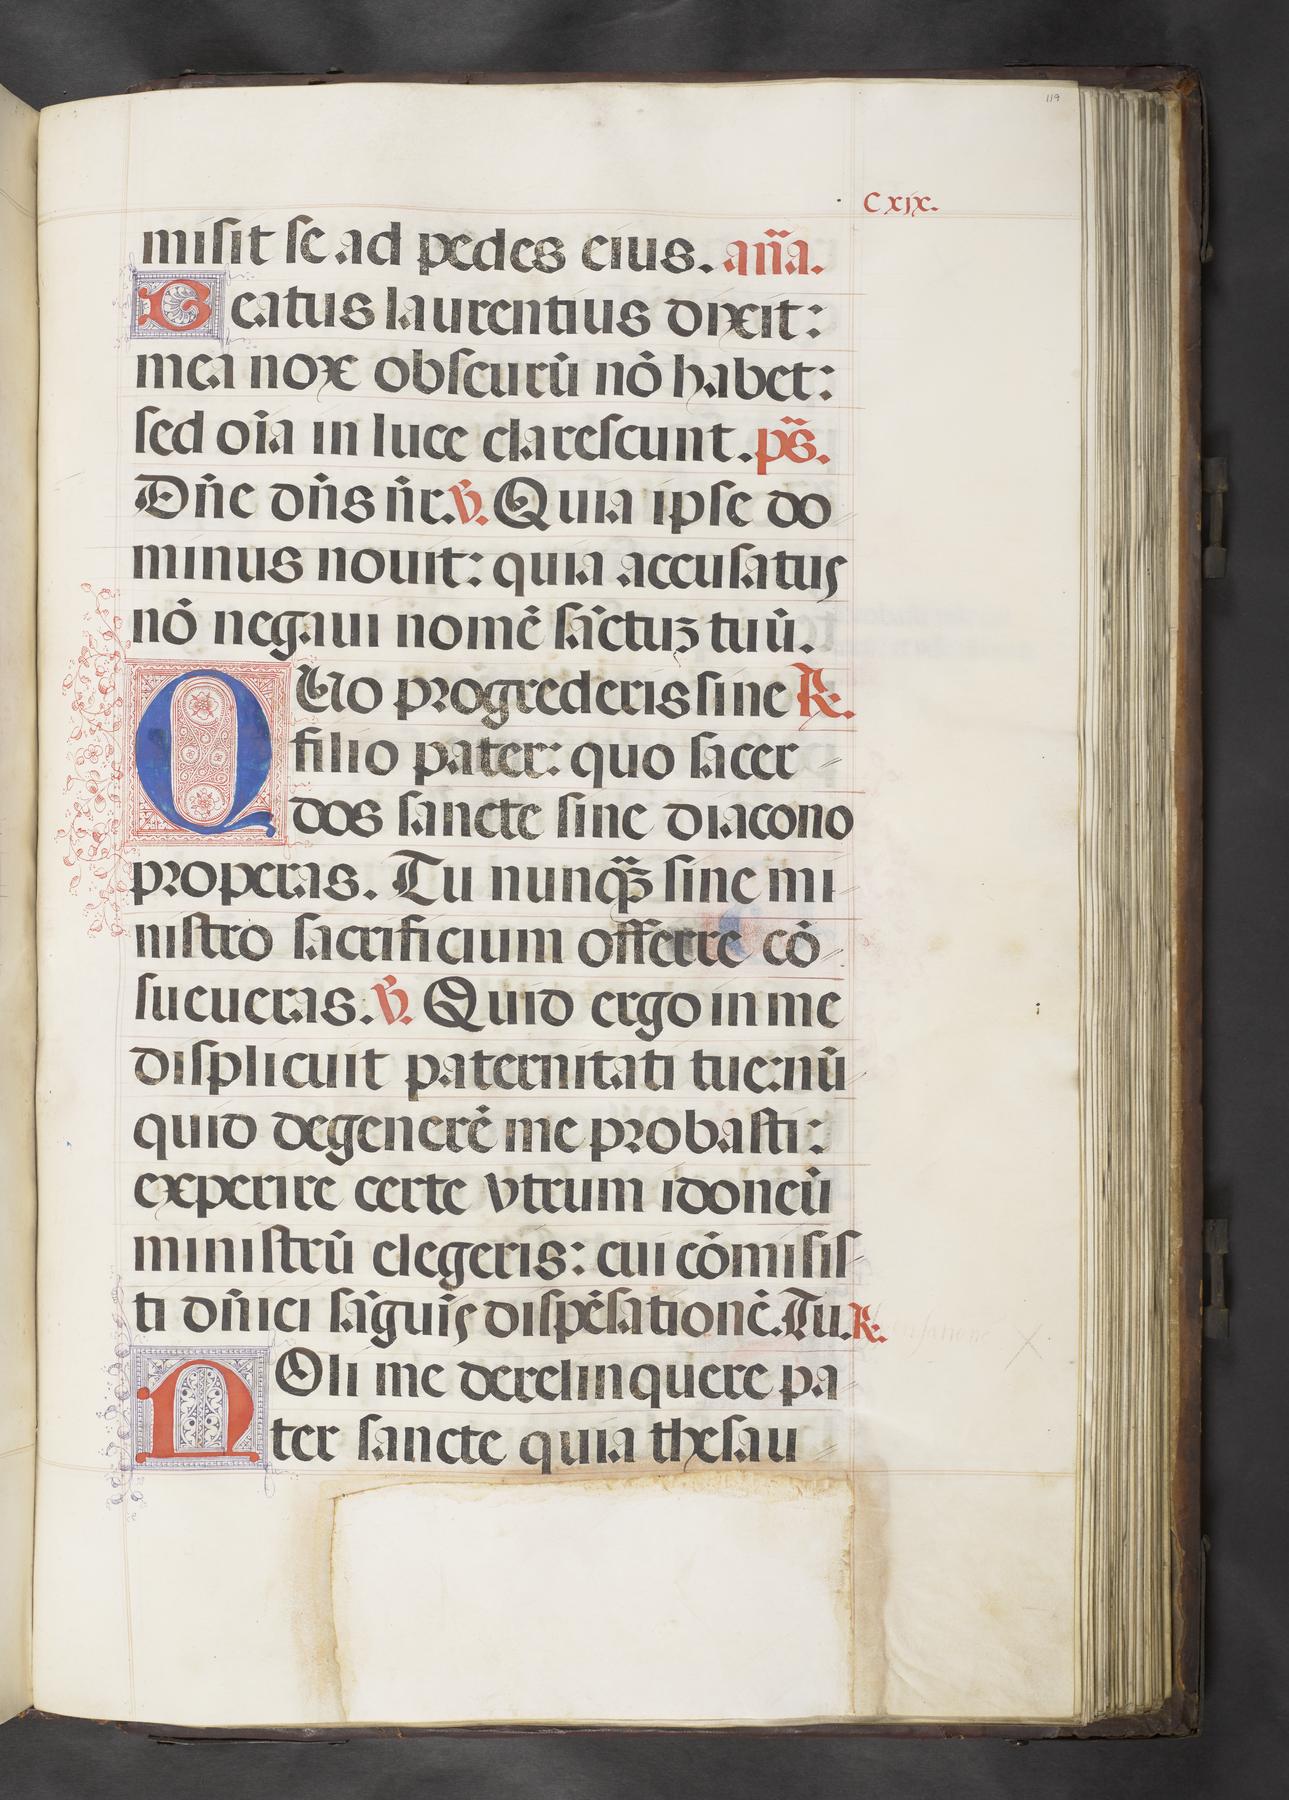 119
Cxix.
misit se ad pedes eius. an̄a.
Beatus laurentius dixit:
mea nox obscurū nō habet:
sed oīa in luce clarescunt. ps̄.
Dn̄e dn̄s nr̄. ℣. Quia ipse do
minus nouit: quia accusatus
nō negaui nomē sāctuʒ tuū.
QUo progrederis sine ℟.
filio pater: quo sacer
dos sancte sine diacono
properas. Tu nunq̄ʒ sine mi
nistro sacrificium offerre cō
sueueras. ℣. Quid ergo in me
displicuit paternitati tue: nū
quid degenerē me probasti:
experire certe vtrum idoneū
ministrū elegeris: cui cōmisis
ti dn̄ici sāguīs dispēsationē. Tu. ℟.
NOli me derelinquere pa
ter sancte quia thesau